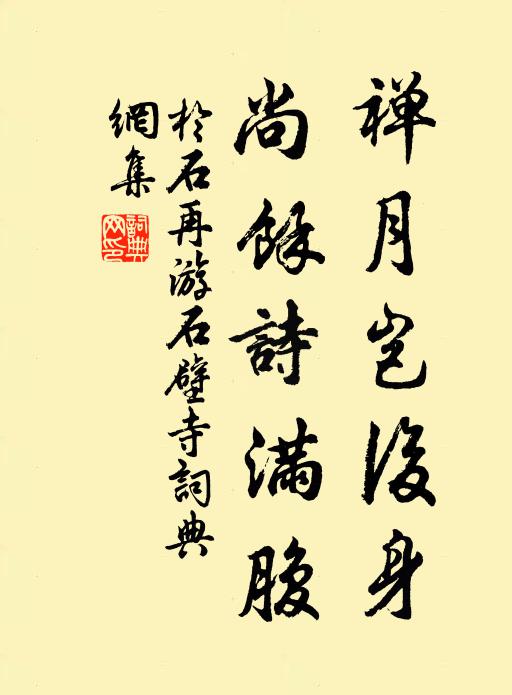 禅月岂後身
尚餘詩满腹
於石再游石壁寺詞典
網集
詞典
网印